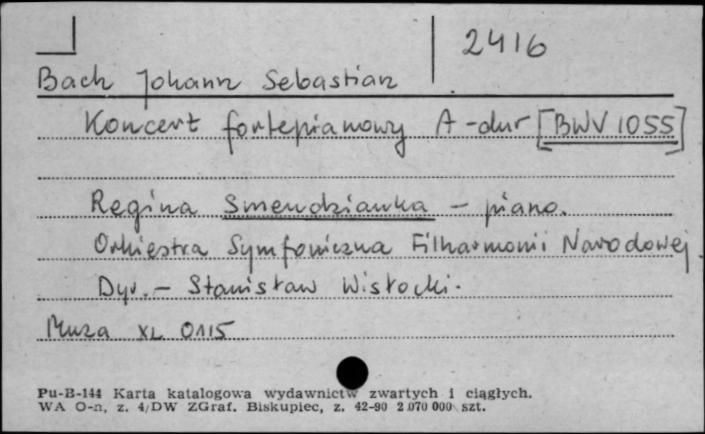 2416
Bach Johann Sebastian
Koncert fortepianowy A-dur [BWV 1055]
Regina Smendzianka – piano.
Orkiestra Symfoniczna Filharmonii Narodowej.
Dyr. – Stanisław Wisłocki.
Muza XL 0115
Pu-B-144 Karta katalogowa wydawnictw zwartych i ciągłych.
WA O-n, z. 4/DW ZGraf. Biskupiec, z. 42-90 2 070 000 szt.